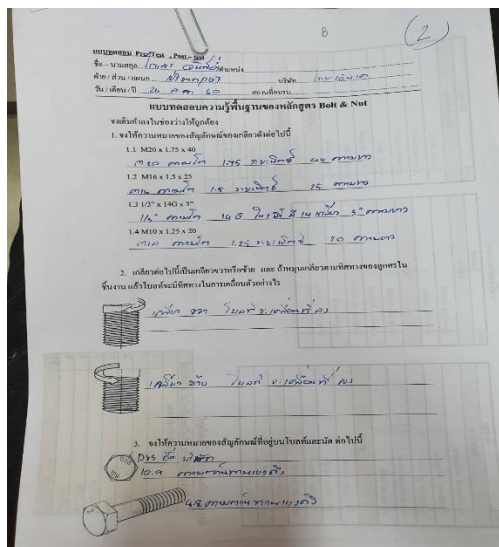 B (2)
แบบทดสอบ Pre-Test , Post – test
ชื่อ – นามสกุล ตำแหน่ง
ฝ่าย / ส่วน / แผนก บริษัท
วัน / เดือน / ปี 24 ส.ค. 60 สถานที่อบรม
แบบทดสอบความรู้พื้นฐานของหลักสูตร Bolt & Nut
จงเติมคำลงในช่องว่างให้ถูกต้อง
1. จงให้ความหมายของสัญลักษณ์ของเกลียวดังต่อไปนี้
1.1 M20 x 1.75 x 40
ความโต 1.75 ระยะพิตซ์ 40 ความยาว
1.2 M16 x 1.5 x 25
M16 ความโต 1.5 ระยะพิตซ์ 25 ความยาว
1.3 1/3" x 14G x 3"
ความโต 14 G ใน 1 นิ้ว มี 14 เกลียว 3" ความยาว
1.4 M10 x 1.25 x 20
ความโต 1.25 ระยะพิตซ์ 20 ความยาว
2. เกลียวต่อไปนี้เป็นเกลียวขวาหรือซ้าย และ ถ้าหมุนเกลียวตามทิศทางของลูกศรใน
ชิ้นงาน แล้วโบลท์จะมีทิศทางในการเคลื่อนตัวอย่างไร
เกลียว ขวา โบลท์ จะเคลื่อนที่ ลง
เกลียว ซ้าย โบลท์ จะเคลื่อนที่ ลง
3. จงให้ความหมายของสัญลักษณ์ที่อยู่บนโบลท์และนัต ต่อไปนี้
DYS คือ บริษัท
10.9 ความต้านทานแรงดึง
4.8 ความต้านทานแรงดึง